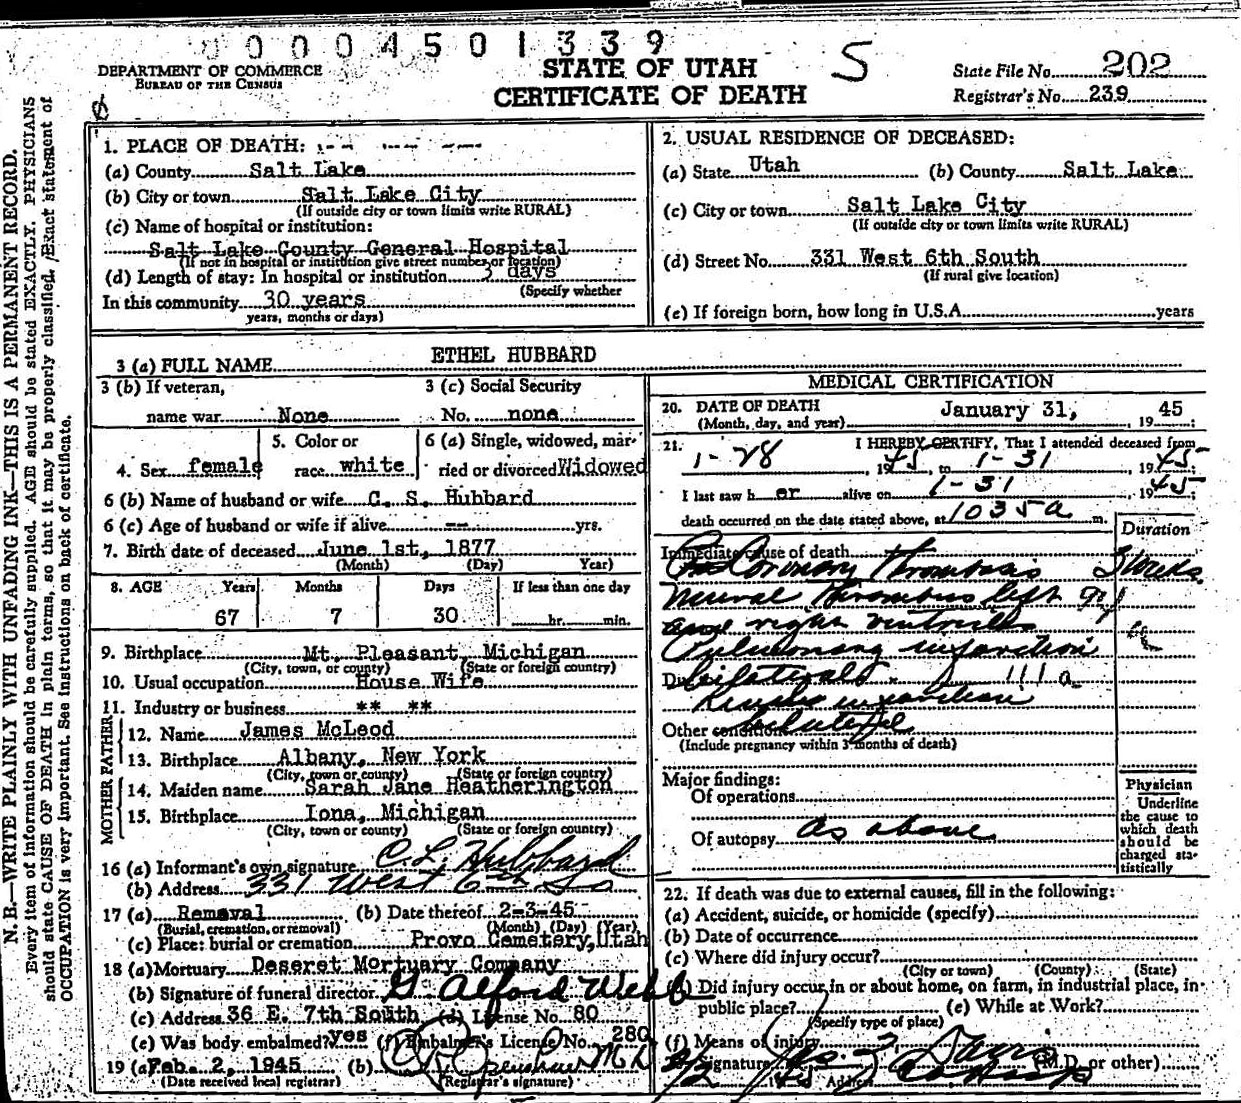 0 0 0 0 4 5 0 1 3 3 9
DEPARTMENT OF COMMERCE
BUREAU OF THE CENSUS
STATE OF UTAH
CERTIFICATE OF DEATH
S
State File No. 202
Registrar's No. 239
N. B.—WRITE PLAINLY WITH UNFADING INK—THIS IS A PERMANENT RECORD.
Every item of information should be carefully supplied. AGE should be stated EXACTLY. PHYSICIANS
should state CAUSE OF DEATH in plain terms, so that it may be properly classified. Exact statement of
OCCUPATION is very important. See instructions on back of certificate.
1. PLACE OF DEATH:
(a) County Salt Lake
(b) City or town Salt Lake City
(If outside city or town limits write RURAL)
(c) Name of hospital or institution:
Salt Lake County General Hospital
(If not in hospital or institution give street number or location)
(d) Length of stay: In hospital or institution 3 days
(Specify whether
In this community 30 years
years, months or days)
2. USUAL RESIDENCE OF DECEASED:
(a) State Utah (b) County Salt Lake
(c) City or town Salt Lake City
(If outside city or town limits write RURAL)
(d) Street No. 331 West 6th South
(If rural give location)
(e) If foreign born, how long in U.S.A. years
3 (a) FULL NAME ETHEL HUBBARD
3 (b) If veteran,
name war None
3 (c) Social Security
No. none
4. Sex female
5. Color or
race white
6 (a) Single, widowed, mar-
ried or divorced Widowed
6 (b) Name of husband or wife C. S. Hubbard
6 (c) Age of husband or wife if alive -- yrs.
7. Birth date of deceased June 1st, 1877
(Month) (Day) Year)
8. AGE Years Months Days If less than one day
67 7 30 hr. min.
9. Birthplace Mt. Pleasant Michigan
(City, town, or county) (State or foreign country)
10. Usual occupation House Wife
11. Industry or business ** **
FATHER
12. Name James McLeod
13. Birthplace Albany, New York
(City, town or county) (State or foreign country)
MOTHER
14. Maiden name Sarah Jane Heatherington
15. Birthplace Iona, Michigan
(City, town or county) (State or foreign country)
16 (a) Informant's own signature C. L. Hubbard
(b) Address 331 West 6th So
17 (a) Removal (b) Date thereof 2-3-45
(Burial, cremation, or removal) (Month) (Day) (Year)
(c) Place: burial or cremation Provo Cemetery, Utah
18 (a) Mortuary Deseret Mortuary Company
(b) Signature of funeral director G. Alford Webb
(c) Address 36 E. 7th South (d) License No. 80
(e) Was body embalmed? yes (f) Embalmer's License No. 280
19 (a) Feb. 2, 1945 (b)
(Date received local registrar) (Registrar's signature)
MEDICAL CERTIFICATION
20. DATE OF DEATH January 31, 1945;
(Month, day, and year)
21. I HEREBY CERTIFY, That I attended deceased from
1-28, 1945, to 1-31, 1945;
I last saw her alive on 1-31, 1945
death occurred on the date stated above, at 10 35 a m.
Duration
Immediate cause of death
Coronary thrombosis 3 weeks
mural thrombus left
and right ventricles
Pulmonary infarction
Due
bilateral
Other conditions
(Include pregnancy within 3 months of death)
Major findings:
Of operations
Of autopsy as above
Physician
Underline
the cause to
which death
should be
charged sta-
tistically
22. If death was due to external causes, fill in the following:
(a) Accident, suicide, or homicide (specify)
(b) Date of occurrence
(c) Where did injury occur?
(City or town) (County) (State)
(d) Did injury occur in or about home, on farm, in industrial place, in
public place? (e) While at Work?
(Specify type of place)
(f) Means of injury
Signature (M.D. or other)
Address